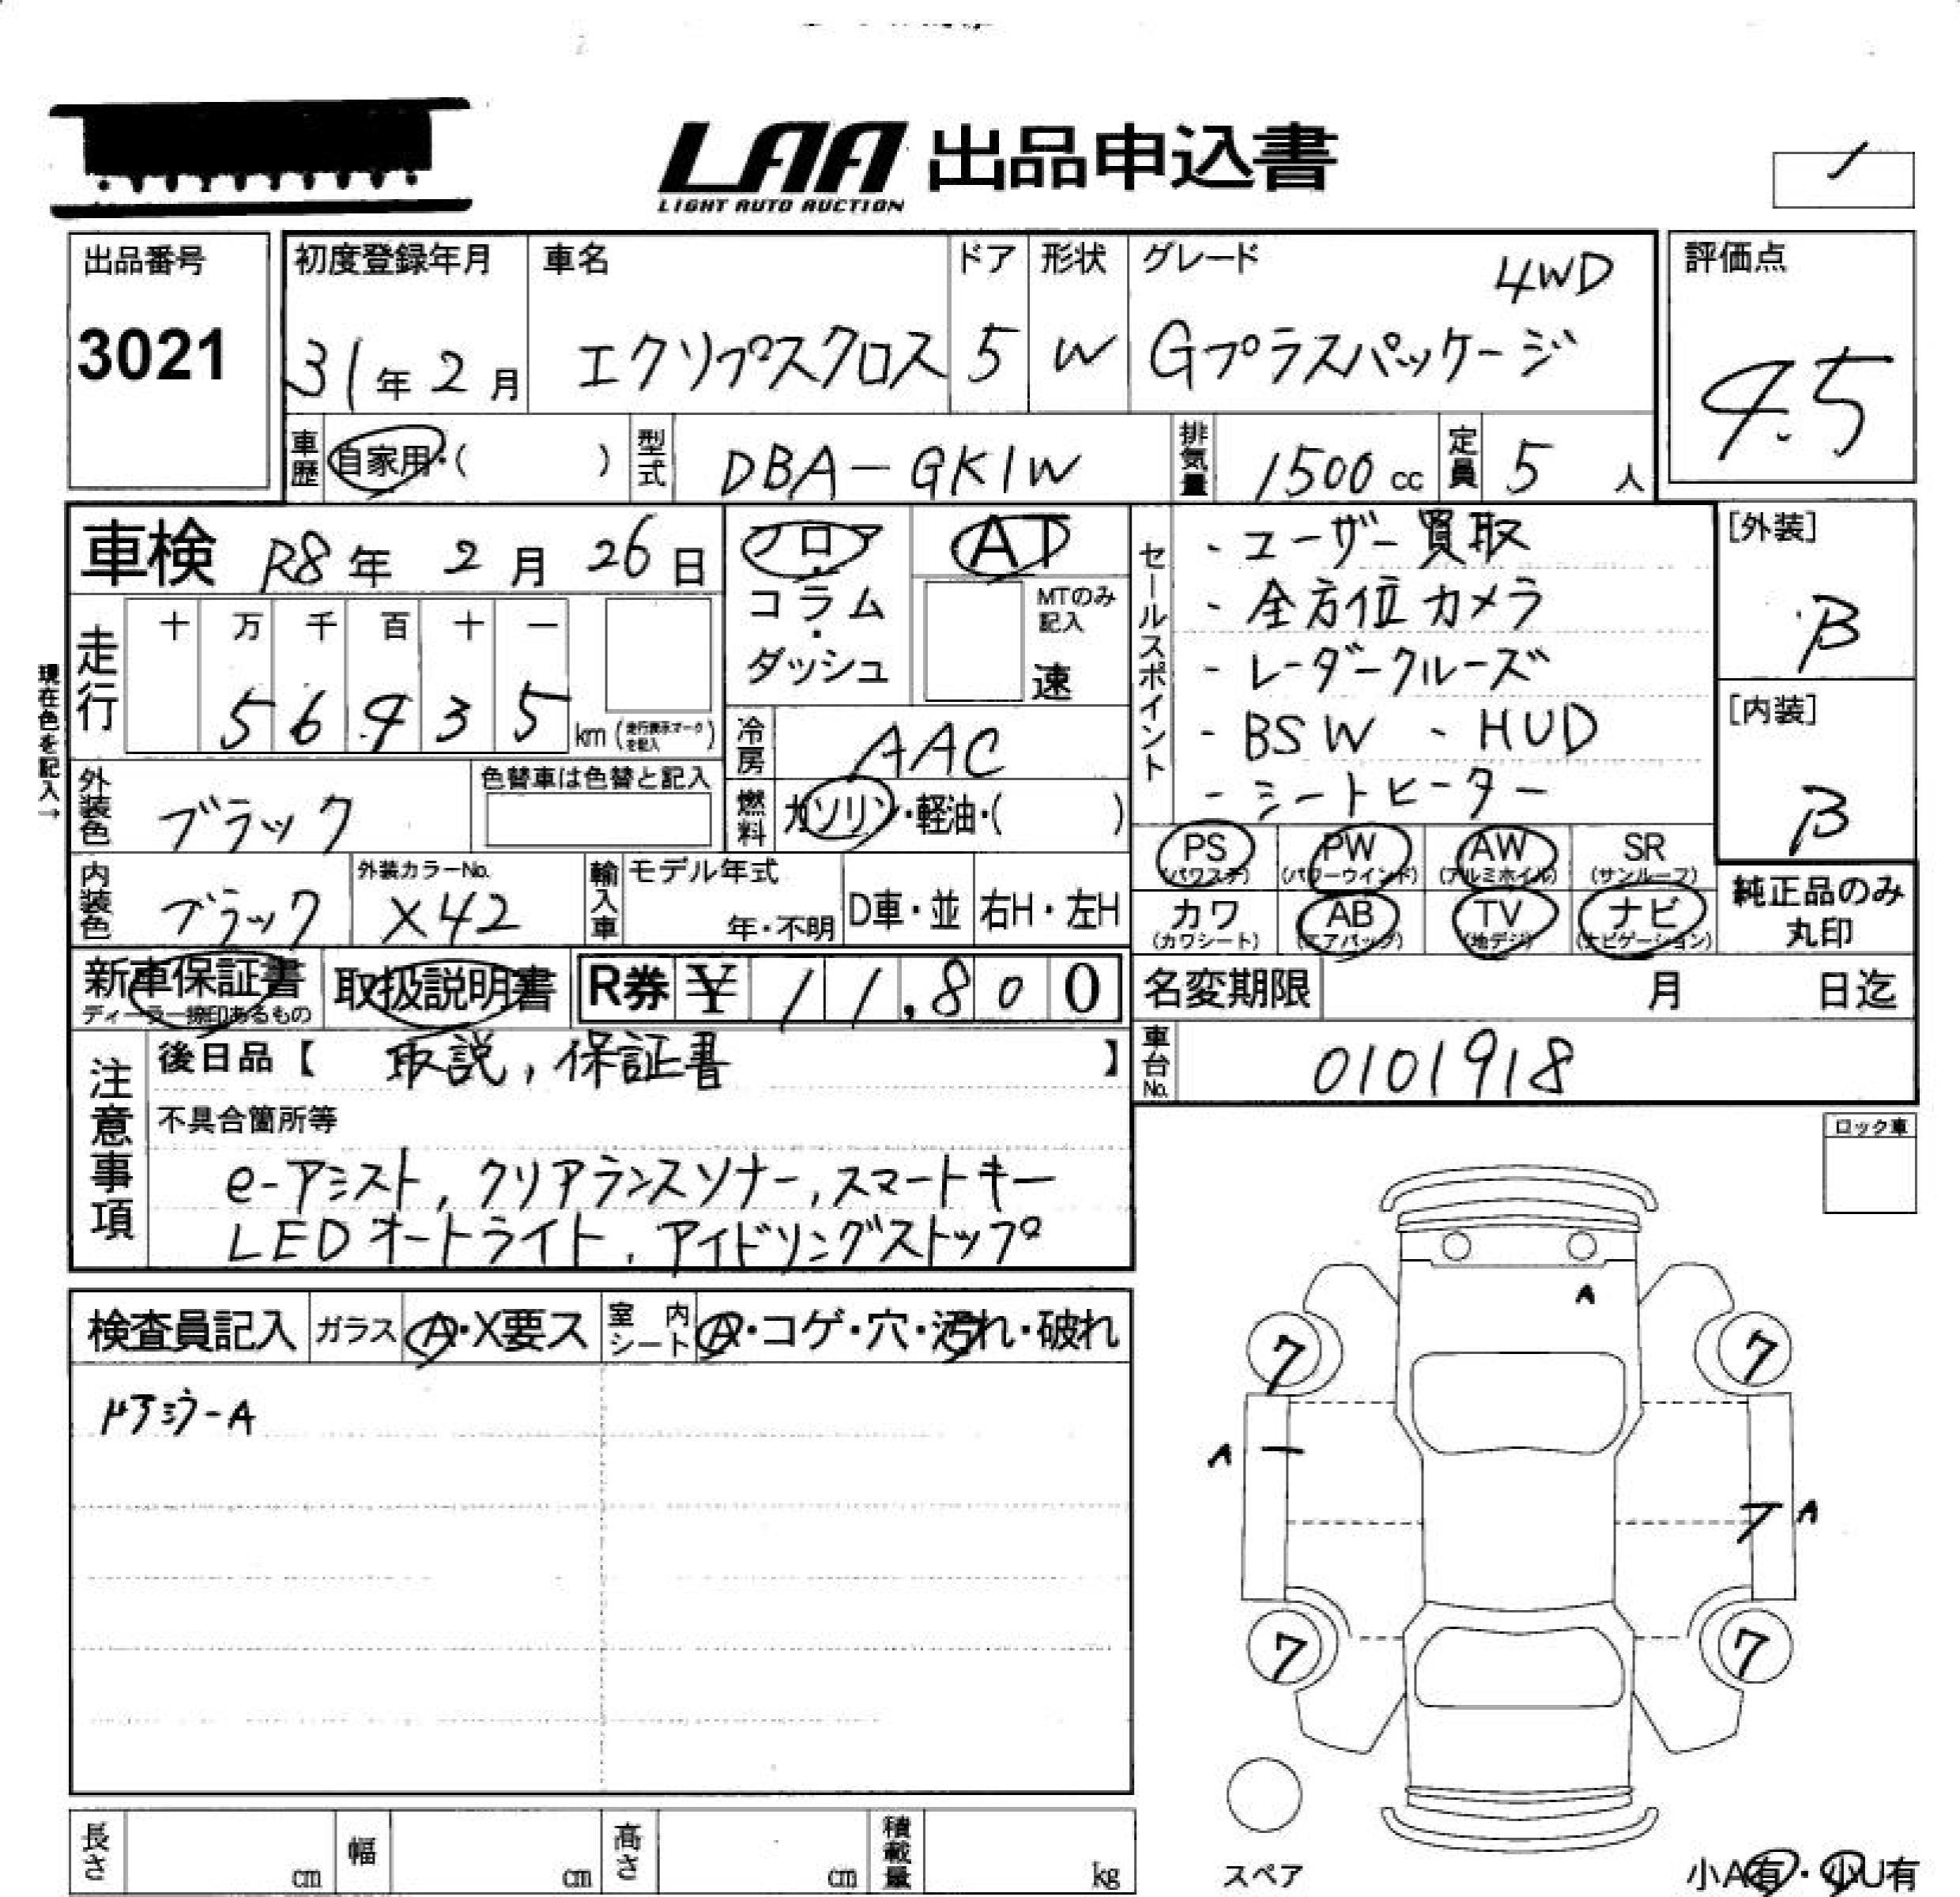 LAA 出品申込書
LIGHT AUTO AUCTION
出品番号 3021
初度登録年月 31年2月
車名 エクリプスクロス
ドア 5
形状 W
グレード 4WD
Gプラスパッケージ
評価点 4.5
車歴 自家用・( )
型式 DBA-GK1W
排気量 1500cc
定員 5人
車検 R8年2月26日
フロア・コラム・ダッシュ
AT
MTのみ記入
速
セールスポイント
・ユーザー買取
・全方位カメラ
・レーダークルーズ
・BSW ・HUD
・シートヒーター
[外装] B
[内装] B
現在色を記入→
走行 十万千百十一
56935 km (走行表示マークを記入)
冷房 AAC
外装色 ブラック
色替車は色替と記入
燃料 ガソリン・軽油・( )
内装色 ブラック
外装カラーNo. X42
輸入車 モデル年式
年・不明
D車・並
右H・左H
PS (パワステ)
PW (パワーウインド)
AW (アルミホイル)
SR (サンルーフ)
カワ (カワシート)
AB (エアバッグ)
TV (地デジ)
ナビ (ナビゲーション)
純正品のみ丸印
新車保証書
ディーラー捺印あるもの
取扱説明書
R券 ¥11,800
名変期限 月 日迄
車台No. 0101918
注意事項
後日品【 取説, 保証書 】
不具合箇所等
e-アシスト, クリアランスソナー, スマートキー
LEDオートライト, アイドリングストップ
ロック車
検査員記入
ガラス A・X要ス
室内シート A・コゲ・穴・汚れ・破れ
ドアミラーA
A
7 7
A
A
7 7
スペア
小A有・小U有
長さ cm
幅 cm
高さ cm
積載量 kg